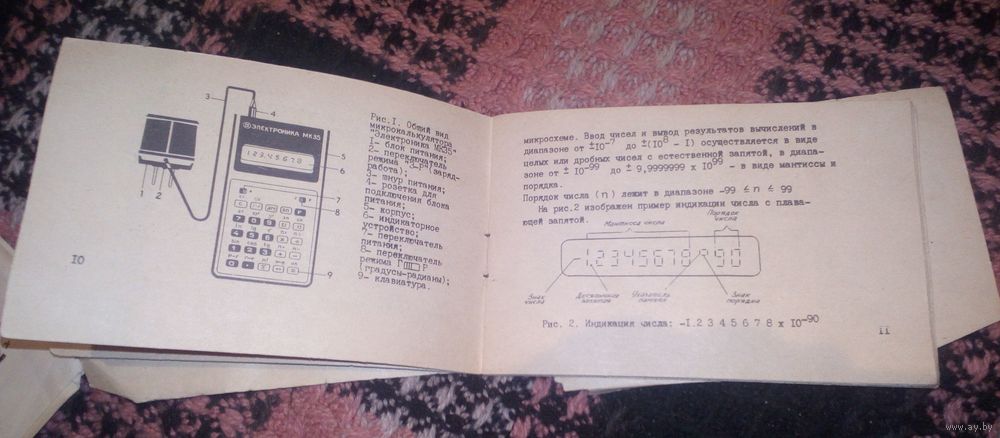 3
4
ЭЛЕКТРОНИКА МК35
12345678
5
6
7
8
9
1
2
Рис.I. Общий вид
микрокалькулятора
"Электроника МК35"
1- блок питания;
2- переключатель
режима "З-Р"(заряд-
работа);
3- шнур питания;
4- розетка для
подключения блока
питания;
5- корпус;
6- индикаторное
устройство;
7- переключатель
питания;
8- переключатель
режима Г Р
(градусы-радианы);
9- клавиатура.
IO
микросхеме. Ввод чисел и вывод результатов вычислений в
диапазоне от ±IO-7 до ±(IO8 - I) осуществляется в виде
целых или дробных чисел с естественной запятой, в диапа-
зоне от ± IO-99 до ± 9,9999999 x IO99 - в виде мантиссы и
порядка.
Порядок числа (n) лежит в диапазоне -99 ≤ n ≤ 99
На рис.2 изображен пример индикации числа с плава-
ющей запятой.
Мантисса числа
Порядок
числа
-1,2345678-90
Знак
числа
Десятичная
запятая
Указатель
Знак
порядка
Рис. 2. Индикация числа: -I.2 3 4 5 6 7 8 x IO-90
II
www.ay.by